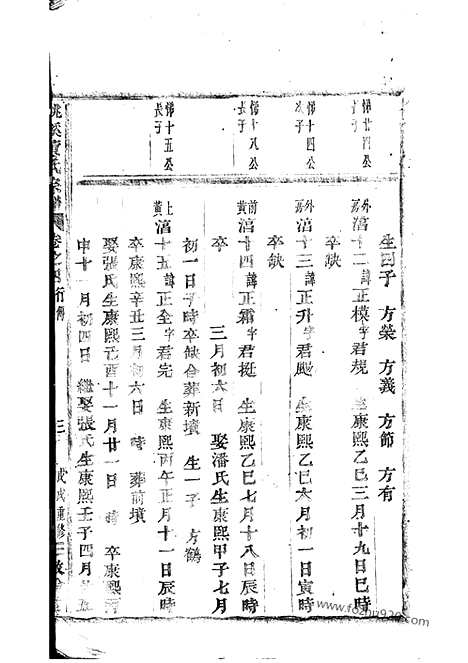 生四子 方榮 方義 方節 方有
悌廿四公
長子
外寫
涫十二 諱正模字君規 生康熙乙巳三月十九日巳時
卒缺
悌十四公
次子
外寫
涫十三 諱正升字君颺 生康熙乙巳六月初一日寅時
卒缺
悌十八公
長子
前黃
涫十四 諱正霜字君挺 生康熙乙巳七月十八日辰時
卒 三月初六日 娶潘氏生康熙甲子七月
初一日子時卒缺合葬新墳 生一子 方鶴
悌十五公
長子
上黃
涫十五 諱正全字君完 生康熙丙午正月十一日辰時
卒康熙辛丑三月初六日 時 葬前墳
娶張氏生康熙己酉十一月廿一日 時 卒康熙丙
申十一月初四日 繼娶張氏生康熙壬子四月
桃溪賈氏宗譜
卷之四行傳
三
戊戌重修
www.fozhu920.com